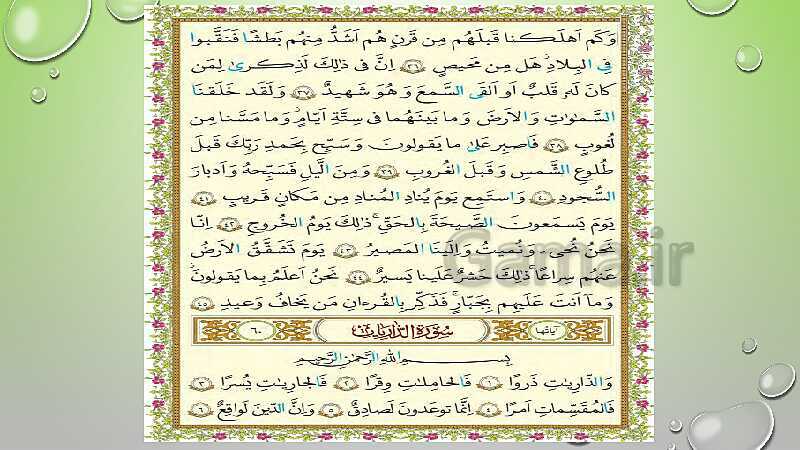 وَكَم اَهلَكنا قَبلَهُم مِن قَرنٍ هُم اَشَدُّ مِنهُم بَطشًا فَنَقَّبوا
فِى البِلادِ هَل مِن مَحيصٍ ٣٦ اِنَّ فى ذٰلِكَ لَذِكرىٰ لِمَن
كانَ لَهٗ قَلبٌ اَو اَلقَى السَّمعَ وَ هُوَ شَهيدٌ ٣٧ وَلَقَد خَلَقنَا
السَّماواتِ وَالاَرضَ وَ ما بَينَهُما فى سِتَّةِ اَيّامٍ وَ ما مَسَّنا مِن
لُغوبٍ ٣٨ فَاصبِر عَلىٰ ما يَقولونَ وَ سَبِّح بِحَمدِ رَبِّكَ قَبلَ
طُلوعِ الشَّمسِ وَ قَبلَ الغُروبِ ٣٩ وَ مِنَ الَّيلِ فَسَبِّحهُ وَ اَدبارَ
السُّجودِ ٤٠ وَ استَمِع يَومَ يُنادِ المُنادِ مِن مَكانٍ قَريبٍ ٤١
يَومَ يَسمَعونَ الصَّيحَةَ بِالحَقِّ ذٰلِكَ يَومُ الخُروجِ ٤٢ اِنّا
نَحنُ نُحيى وَ نُميتُ وَ اِلَينَا المَصيرُ ٤٣ يَومَ تَشَقَّقُ الاَرضُ
عَنهُم سِراعًا ذٰلِكَ حَشرٌ عَلَينا يَسيرٌ ٤٤ نَحنُ اَعلَمُ بِما يَقولونَ
وَ ما اَنتَ عَلَيهِم بِجَبّارٍ فَذَكِّر بِالقُرءانِ مَن يَخافُ وَعيدِ ٤٥
آياتُها سورَةُ الذّارِيات ٦٠
بِسمِ اللّٰهِ الرَّحمٰنِ الرَّحيمِ
وَ الذّارِياتِ ذَروًا ١ فَالحامِلاتِ وِقرًا ٢ فَالجارِياتِ يُسرًا ٣
فَالمُقَسِّماتِ اَمرًا ٤ اِنَّما توعَدونَ لَصادِقٌ ٥ وَ اِنَّ الدّينَ لَواقِعٌ ٦
Gama.ir